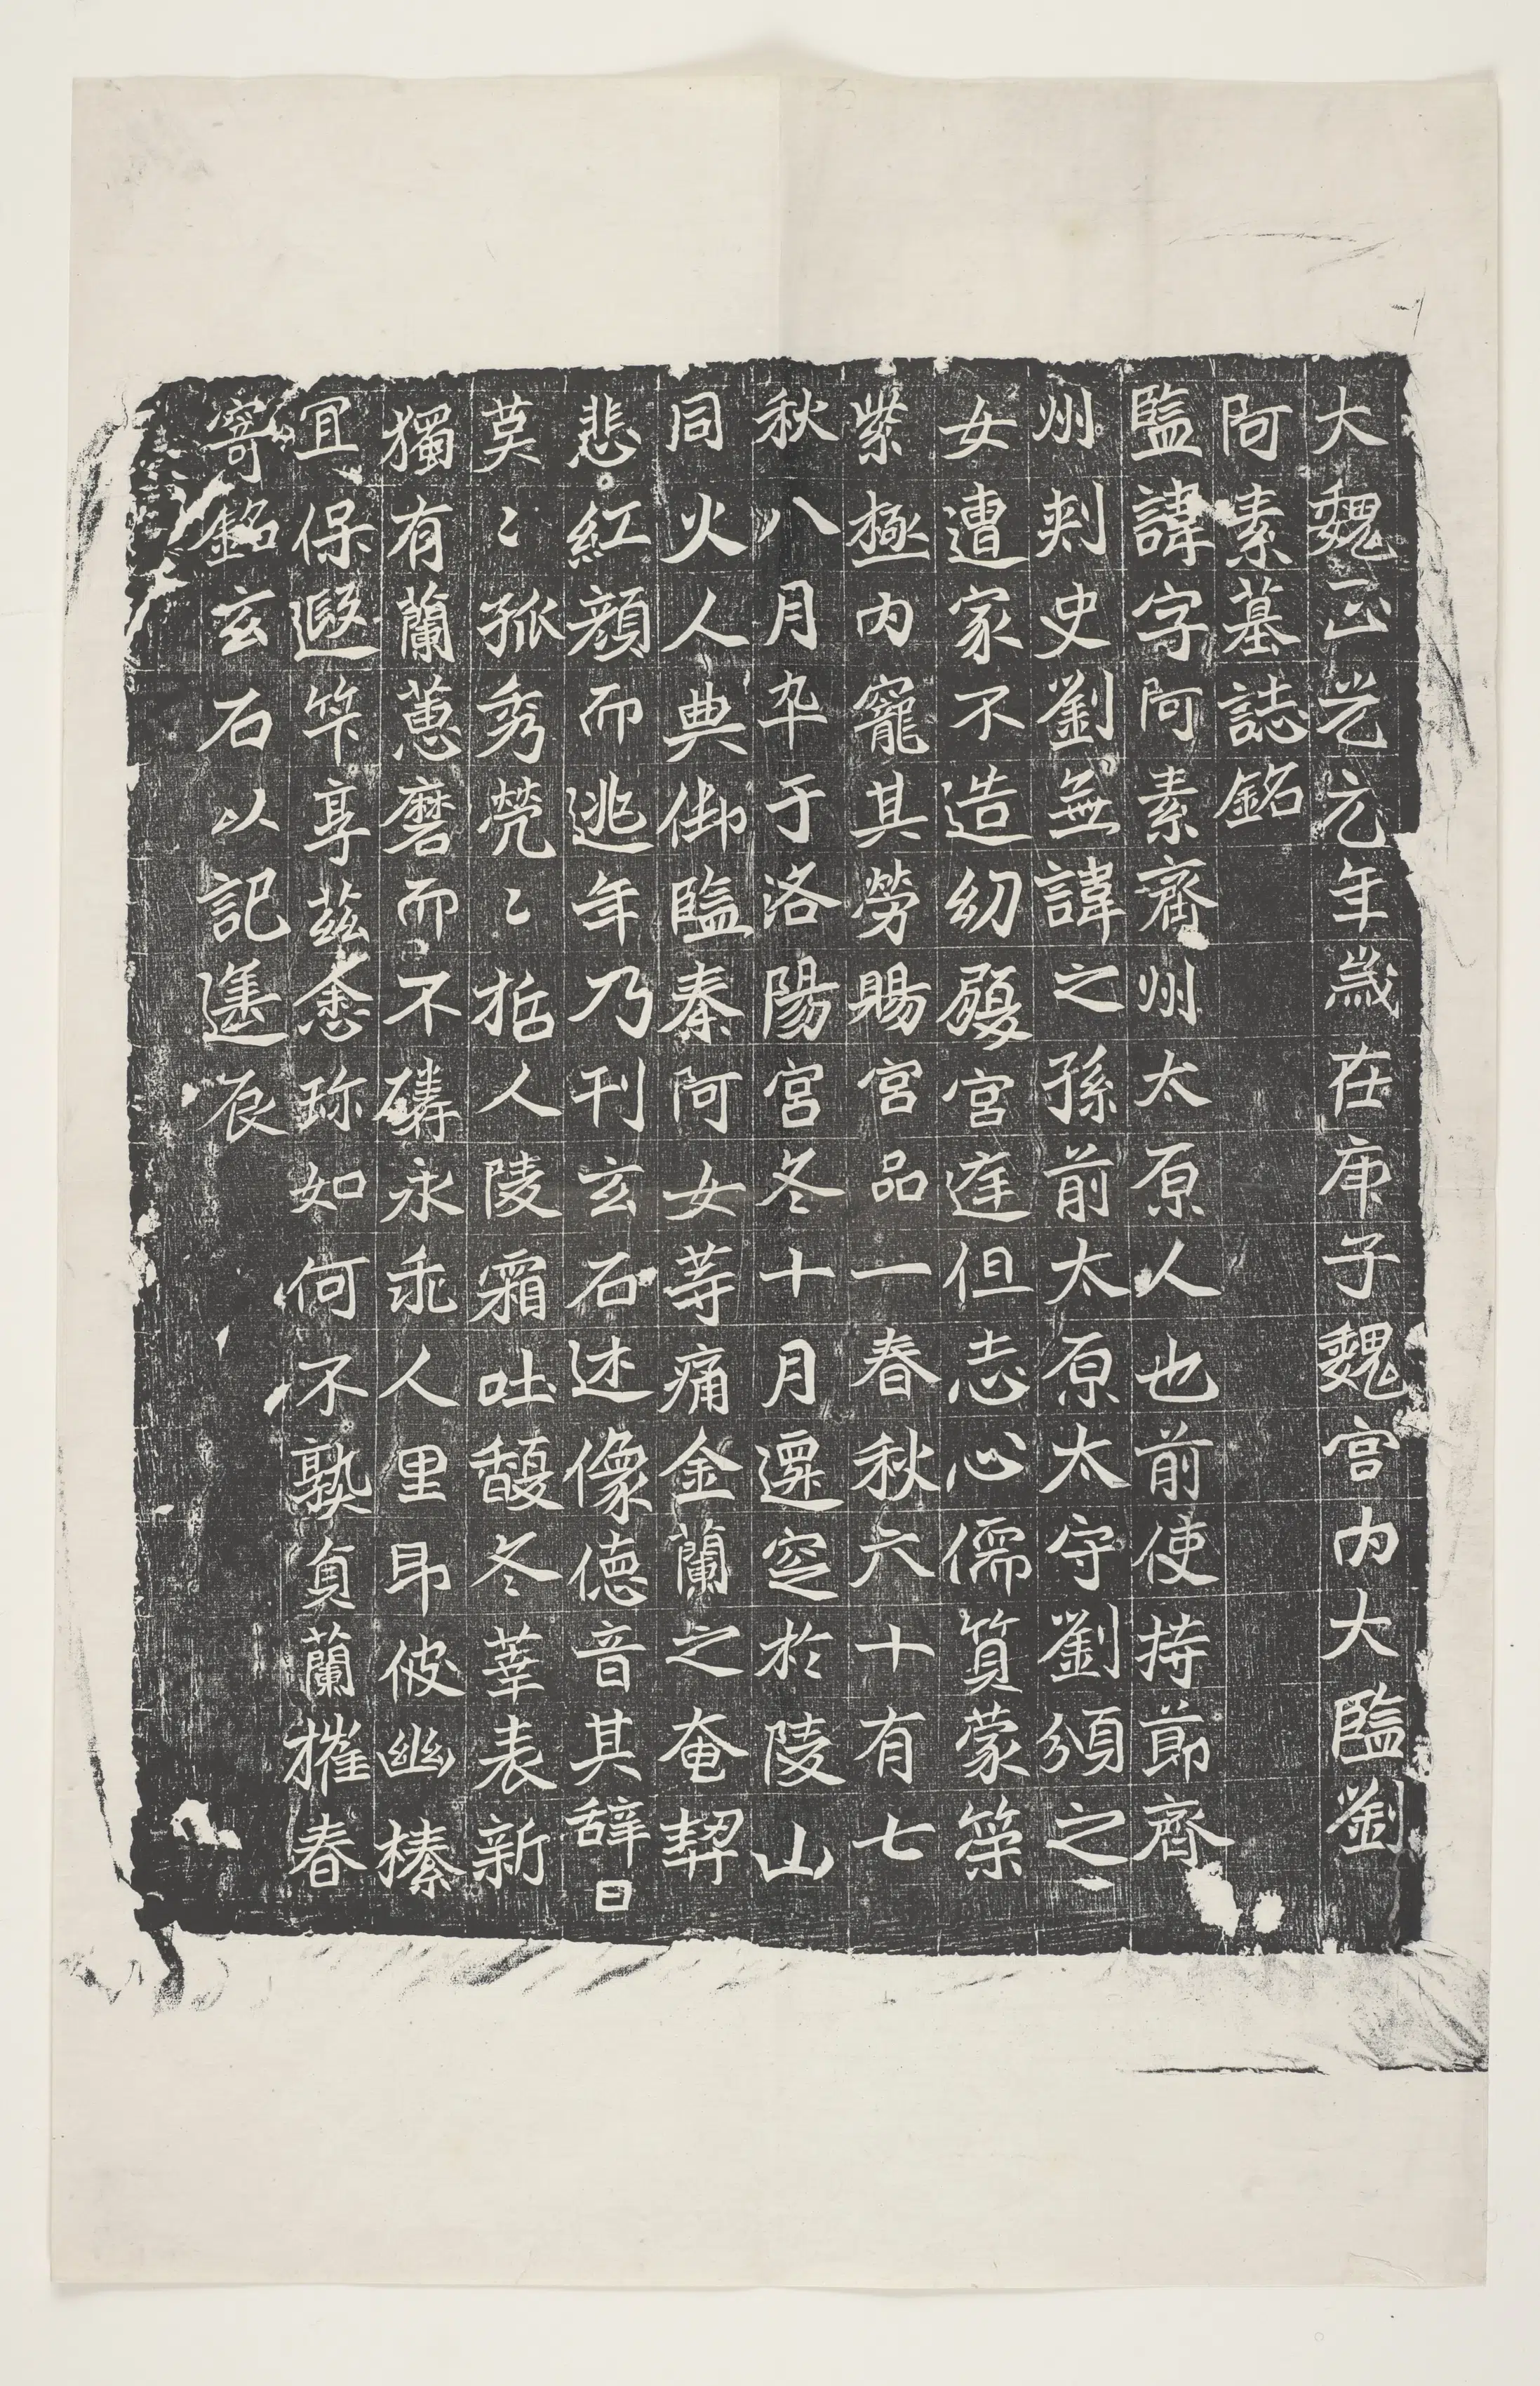 大魏正光元年歲在庚子魏宮內大監劉
阿素墓誌銘
監諱字阿素齊州太原人也前使持節齊
州刺史劉無諱之孫前太原太守劉頒之
女遭家不造幼履宮庭但志心儒質蒙策
紫極內寵其勞賜宮品一春秋六十有七
秋八月卒于洛陽宮冬十月遷窆於陵山
同火人典御監秦阿女等痛金蘭之奄契
悲紅顏而逃年乃刊玄石述像德音其辞曰
莫〻孤秀煢〻哲人陵霜吐馥冬華表新
獨有蘭蕙磨而不磷永乖人里即彼幽榛
宜保遐筭享茲悆珎如何不熟貞蘭摧春
寄銘玄石以記遷辰